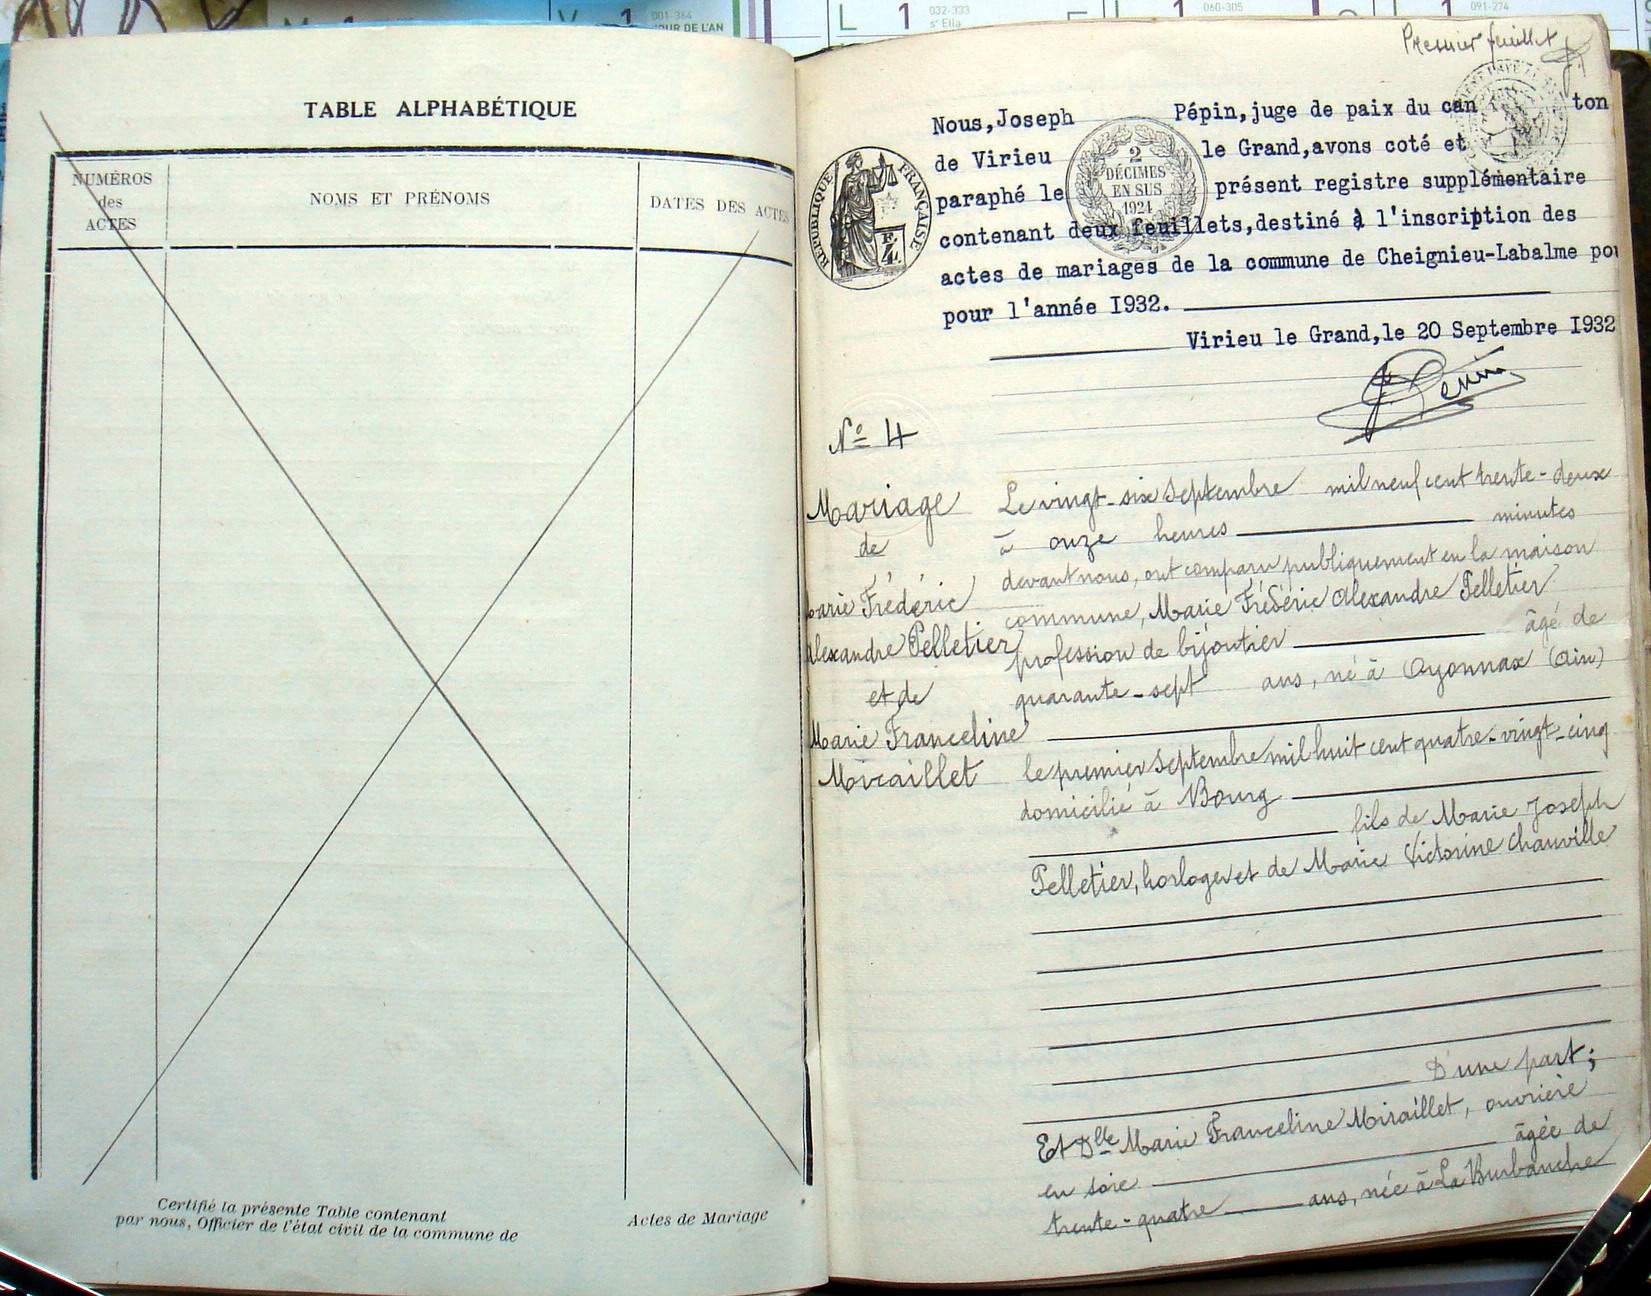 L 1 032-333
s' Ella
V 1 001-364
JOUR DE L'AN
1 060-305
1 091-274
TABLE ALPHABÉTIQUE
NUMÉROS
des
ACTES
NOMS ET PRÉNOMS
DATES DES ACTES
Certifié la présente Table contenant
par nous, Officier de l'état civil de la commune de
Actes de Mariage
Premier feuillet
Nous,Joseph Pépin,juge de paix du can ton
de Virieu le Grand,avons coté et
paraphé le présent registre supplémentaire
contenant deux feuillets,destiné à l'inscription des
actes de mariages de la commune de Cheignieu-Labalme pou
pour l'année I932.
Virieu le Grand,le 20 Septembre I932
RÉPUBLIQUE FRANÇAISE
2
DÉCIMES
EN SUS
1924
Pépin
N° 4
Mariage
de
Marie Frédéric
Alexandre Pelletier
et de
Marie Franceline
Miraillet
Le vingt-six Septembre mil neuf cent trente-deux
à onze heures minutes
devant nous, ont comparu publiquement en la maison
commune, Marie Frédéric Alexandre Pelletier
profession de bijoutier âgé de
quarante-sept ans, né à Oyonnax (Ain)
le premier Septembre mil huit cent quatre-vingt-cinq
domicilié à Bourg
fils de Marie Joseph
Pelletier, horloger et de Marie Victorine Chauville
D'une part;
Et Dlle Marie Franceline Miraillet, ouvrière
en soie âgée de
trente-quatre ans, née à La Burbanche